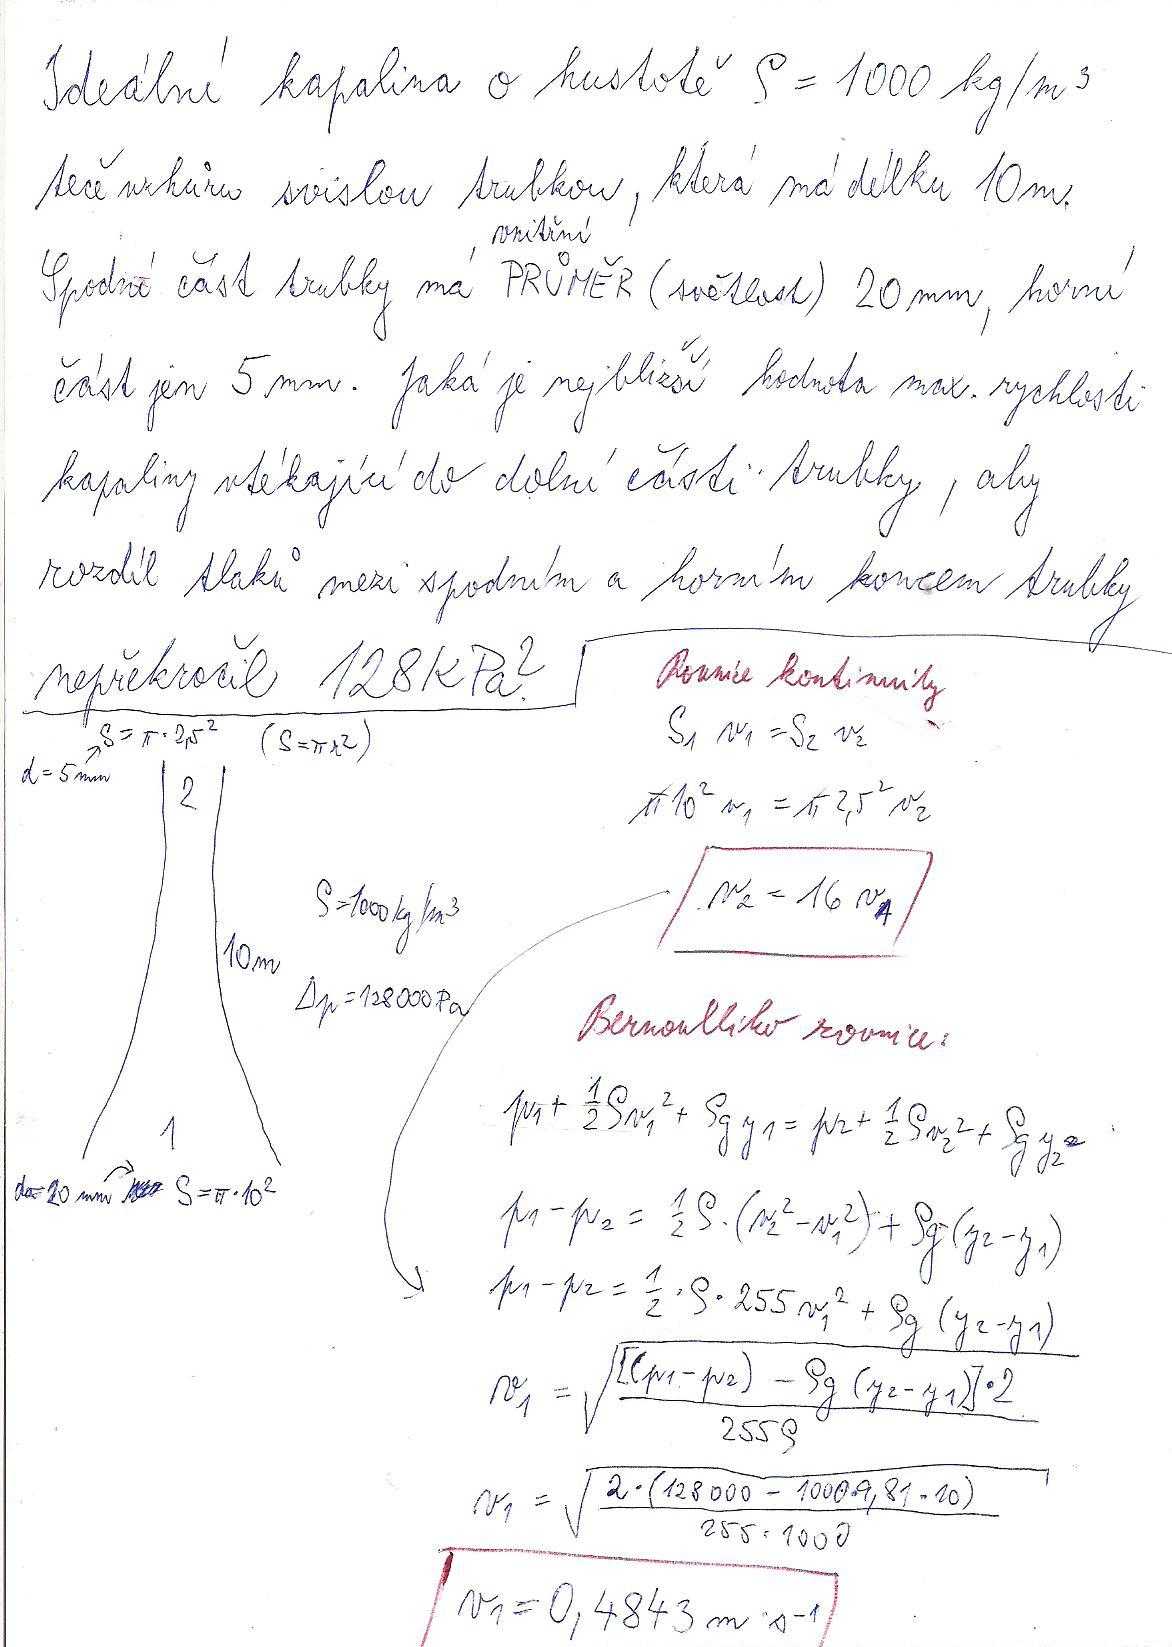 Ideální kapalina o hustotě ρ = 1000 kg/m³
teče vzhůru svislou trubkou, která má délku 10m.
vnitřní
Spodní část trubky má PRŮMĚR (světlost) 20 mm, horní
část jen 5 mm. Jaká je nejbližší hodnota max. rychlosti
kapaliny vtékající do dolní části trubky, aby
rozdíl tlaků mezi spodním a horním koncem trubky
nepřekročil 128 kPa?
S = π·2,5² (S = πr²)
d = 5 mm
2
10m
ρ = 1000 kg/m³
Δp = 128000 Pa
1
d = 20 mm S = π·10²
Rovnice kontinuity
S₁ v₁ = S₂ v₂
π10² v₁ = π2,5² v₂
v₂ = 16 v₁
Bernoulliho rovnice:
p₁ + 1/2 ρv₁² + ρg y₁ = p₂ + 1/2 ρv₂² + ρg y₂
p₁ − p₂ = 1/2 ρ·(v₂² − v₁²) + ρg (y₂ − y₁)
p₁ − p₂ = 1/2 · ρ · 255 v₁² + ρg (y₂ − y₁)
v₁ = √([(p₁ − p₂) − ρg (y₂ − y₁)]·2 / 255ρ)
v₁ = √(2·(128000 − 1000·9,81·10) / 255·1000)
v₁ = 0,4843 m·s⁻¹